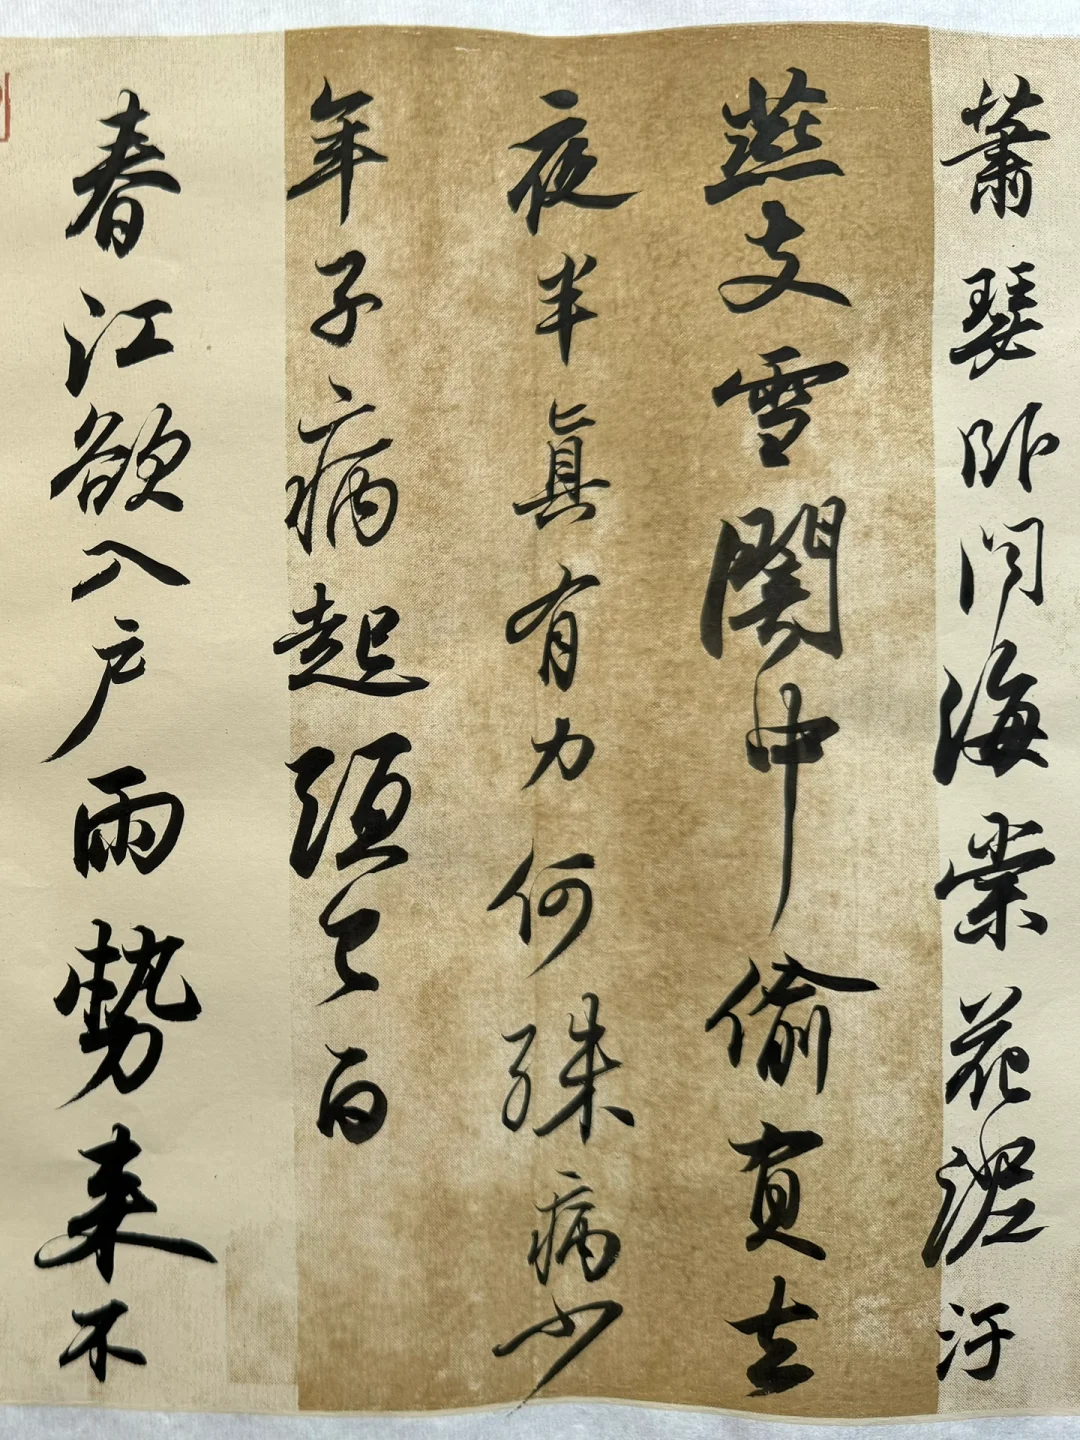 蕭瑟卧闻海棠花泥汙
燕支雪闇中偷負去
夜半真有力何殊病少
年子病起頭已白
春江欲入户雨勢来不